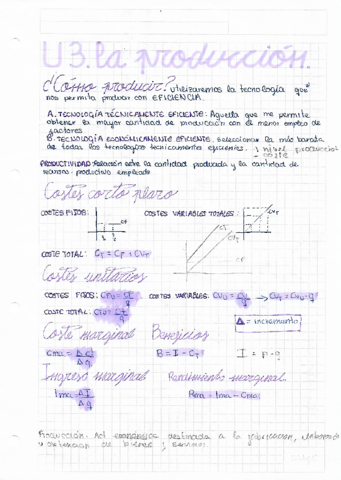 U3. la producción.
¿Cómo producir? utilizaremos la tecnología que
nos permita producir con EFICIENCIA.
A. TECNOLOGÍA TÉCNICAMENTE EFICIENTE: Aquella que me permite
obtener la mayor cantidad de producción con el menor empleo de
factores
B. TECNOLOGÍA ECONÓMICAMENTE EFICIENTE. Seleccionar la más barata
de todas las tecnologías técnicamente eficientes. ↑ nivel producción
- coste
PRODUCTIVIDAD: Relación entre la cantidad producida y la cantidad de
recursos productivo empleado
Costes corto plazo
COSTES FIJOS: CF COSTES VARIABLES TOTALES: CVT
COSTE TOTAL: CT = CF + CVT CT CVT CF
Costes unitarios
COSTES FIJOS: CFU = CF/q COSTES VARIABLES: CVU = CVT/q → CVT = CVU · q
COSTE TOTAL: CTU = CT/q Δ = incremento
Coste marginal Beneficios
Cma = Δ CT/Δ q B = I - CT I = p · q
Ingreso marginal Rendimiento marginal.
Ima = Δ I/Δ q Rma = Ima - Cma
Producción: Act económica destinada a la fabricación, elaboración
u obtención de bienes y servicios